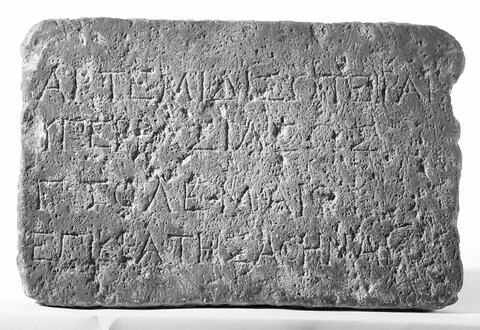 ΑΡΤΕΜΙΔΙΣΩΤΕΙΡΑΙ
ΥΠΕΡΒΑΣΙΛΕΩΣ
ΠΤΟΛΕΜΑΙΟΥ
ΕΠΙΚΡΑΤΗΣΑΘΗΝΑΙΟΣ